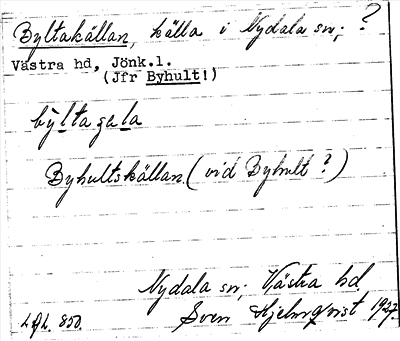 Byltakällan, källa i Nydala sn; ?
Västra hd, Jönk.l.
(Jfr Byhult!)
byltagala
Byhultskällan (vid Byhult?)
Nydala sn; Västra hd.
Sven Hjelmqvist 1927.
850.